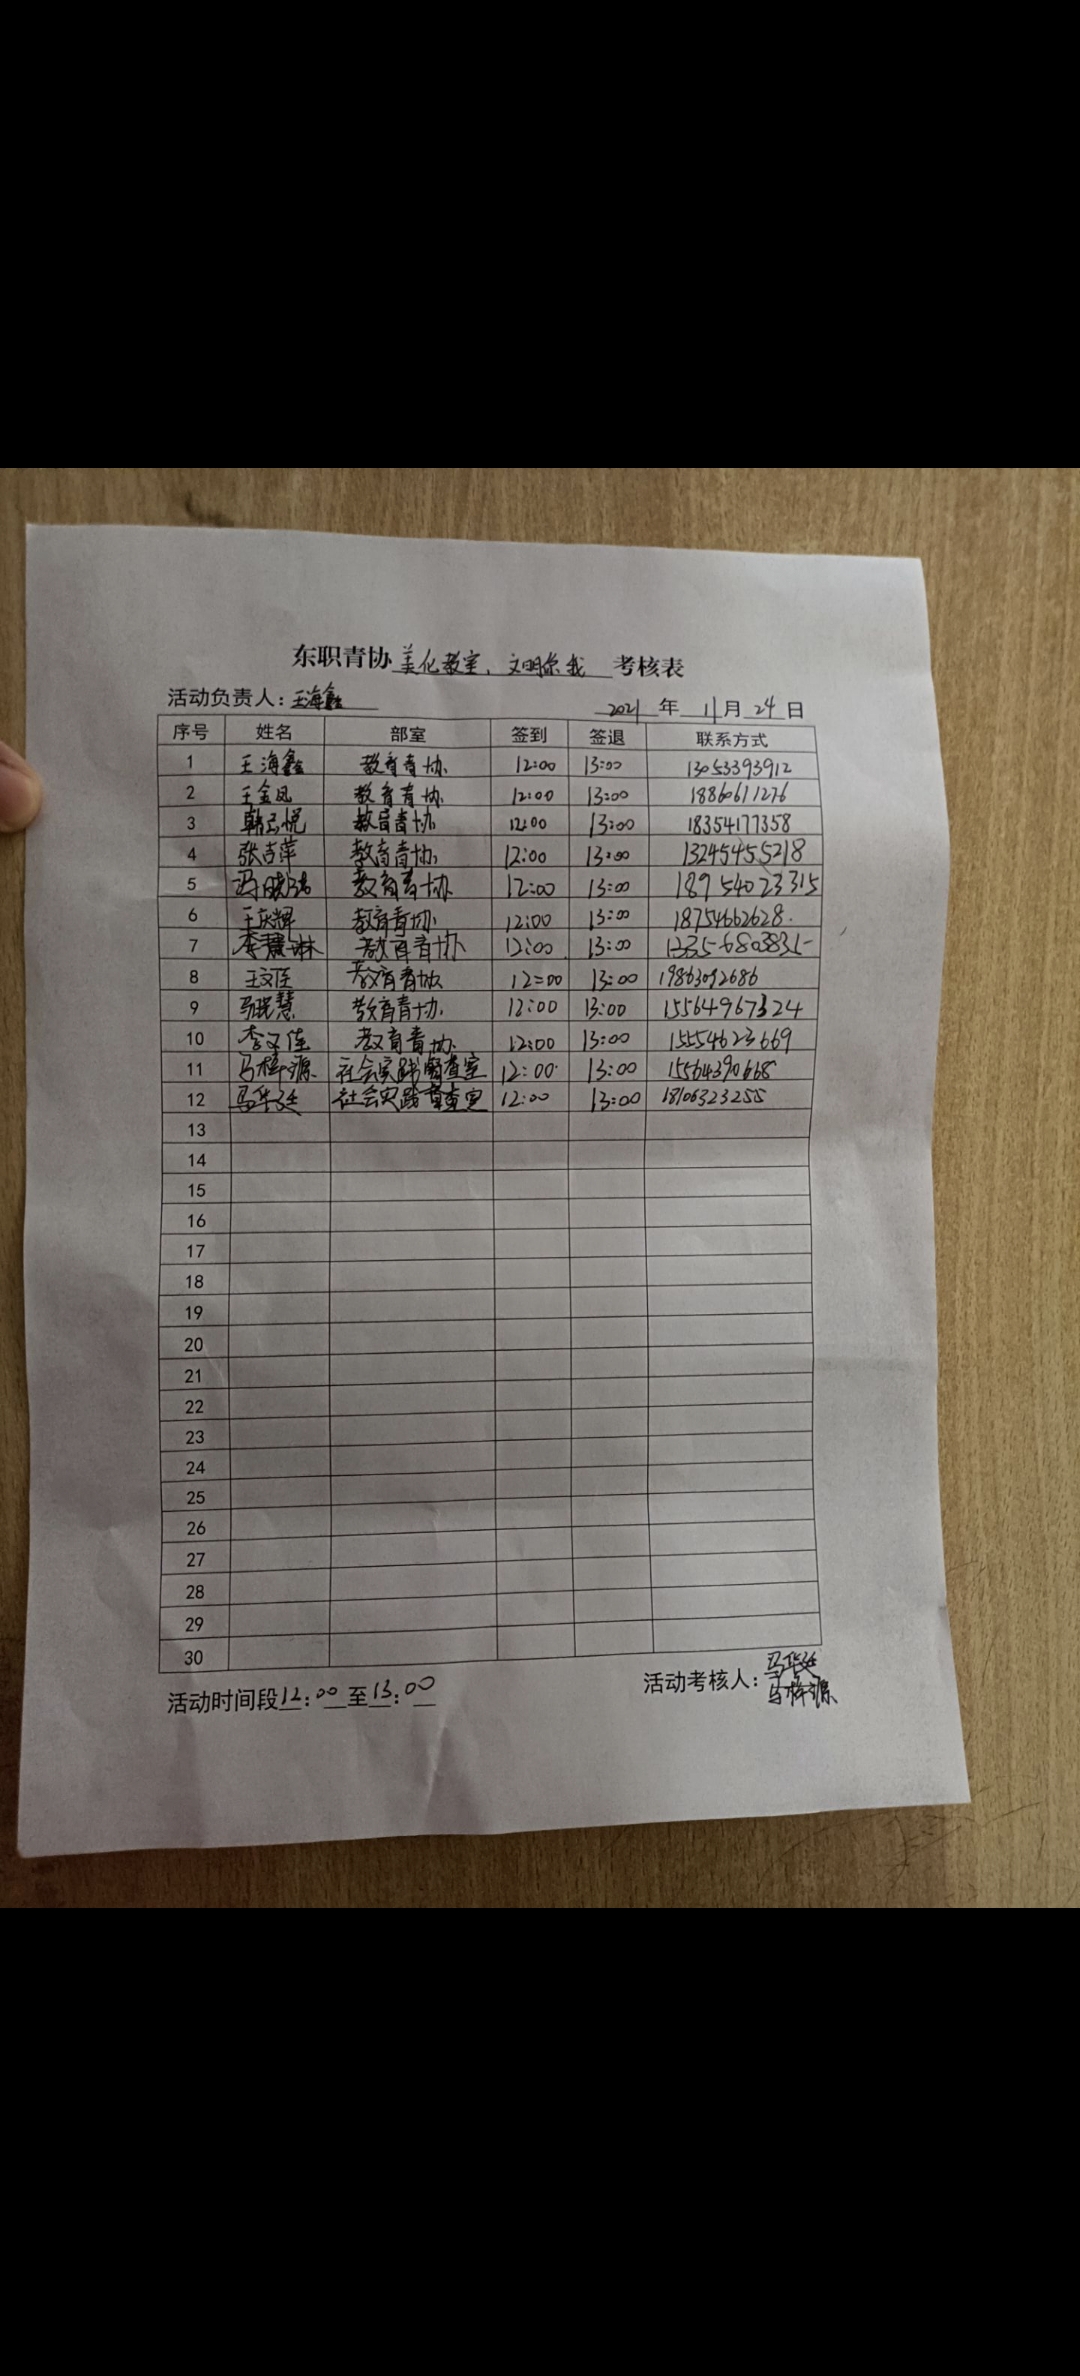 东职青协 美化教室、文明你我 考核表
活动负责人：王海鑫 2021 年 11 月 24 日
序号 姓名 部室 签到 签退 联系方式
1 王海鑫 教育青协 12:00 13:00 13053393912
2 王金凤 教育青协 12:00 13:00 18860611276
3 韩悦 教育青协 12:00 13:00 18354177358
4 张吉萍 教育青协 12:00 13:00 13245455218
5 冯晓 教育青协 12:00 13:00 18954023315
6 王庆辉 教育青协 12:00 13:00 18754662628
7 李慧琳 教育青协 12:00 13:00
8 王文佳 教育青协 12:00 13:00 19863092686
9 马晓慧 教育青协 12:00 13:00 15564967324
10 李文佳 教育青协 12:00 13:00 15554623669
11 马梓源 社会实践督查室 12:00 13:00 15564390668
12 马华廷 社会实践督查室 12:00 13:00 18106323255
13
14
15
16
17
18
19
20
21
22
23
24
25
26
27
28
29
30
活动时间段12:00至13:00 活动考核人：马华廷
马梓源